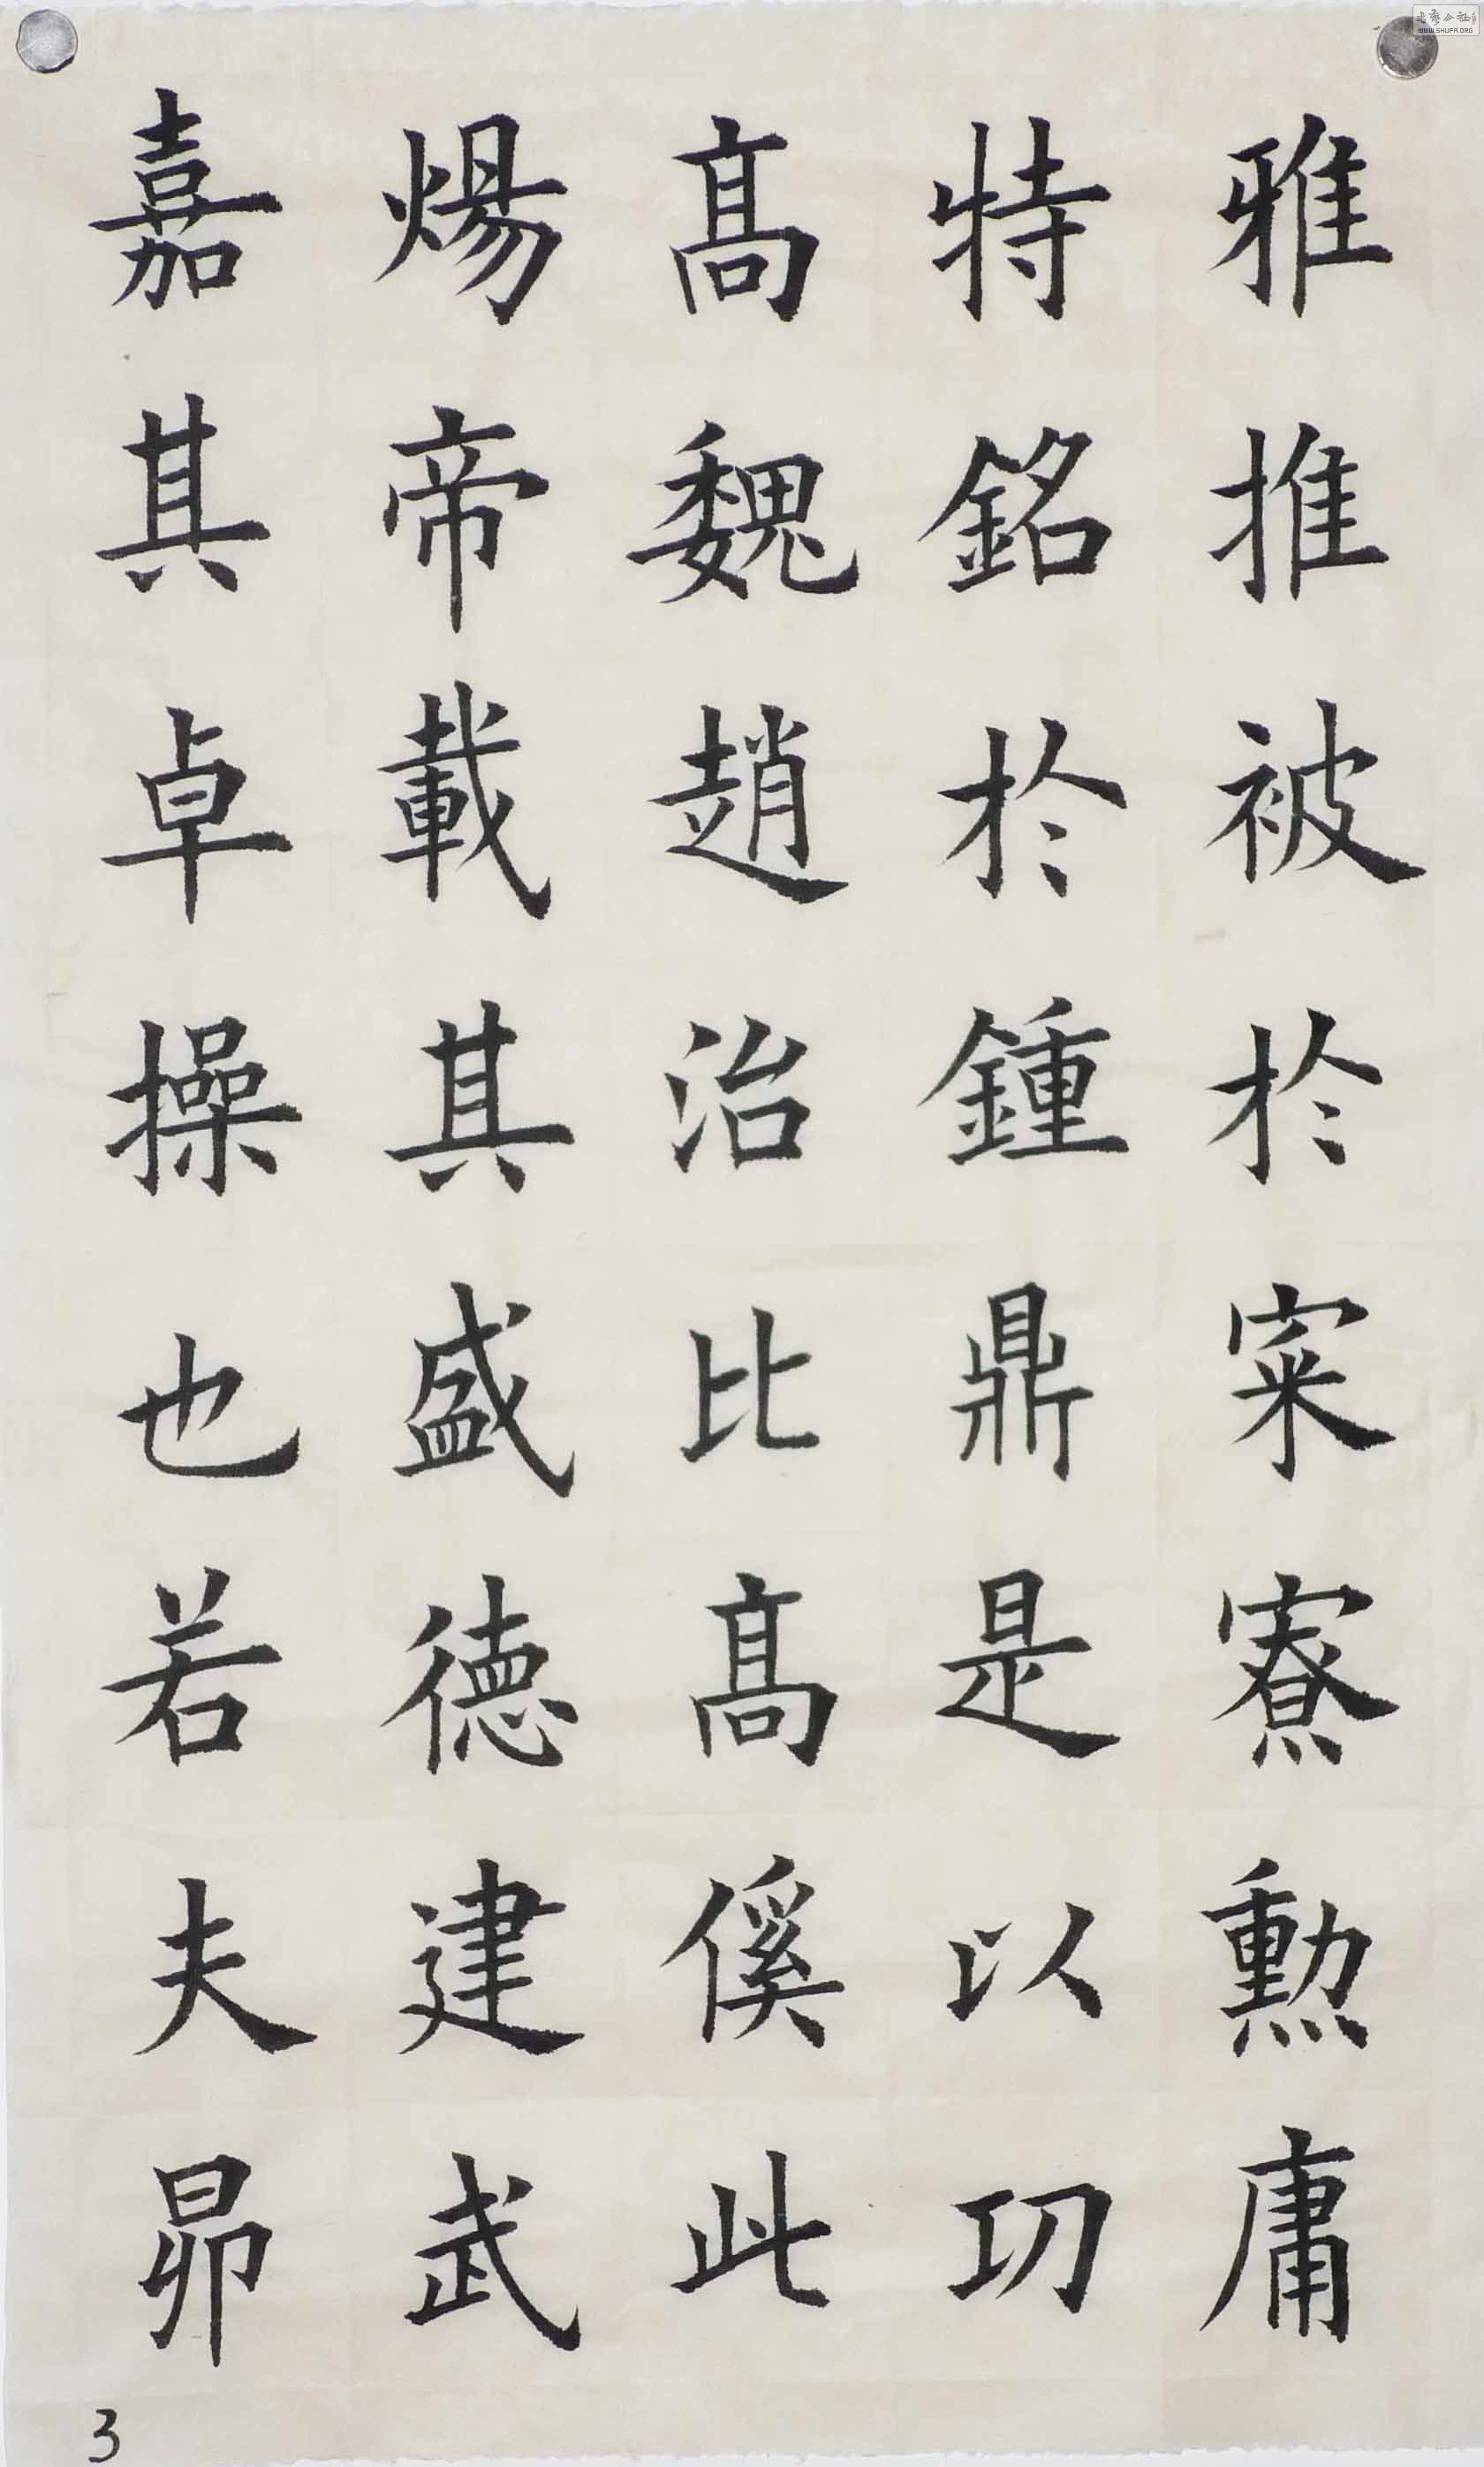 雅推被於寀寮勲庸
特銘於鍾鼎是以功
髙魏趙治比髙傒此
煬帝載其盛德建武
嘉其卓操也若夫昴
3
WWW.SHUFA.ORG